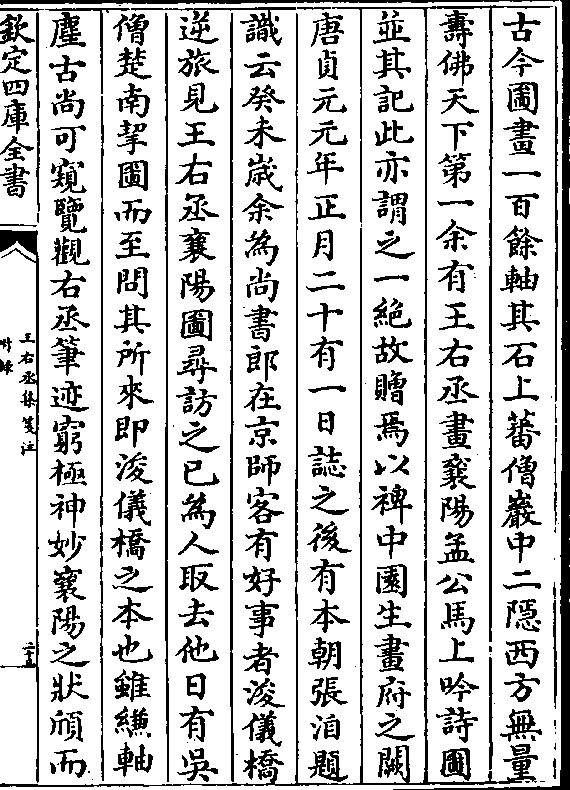 古今圖畫一百餘軸其石上蕃僧巖中二隠西方無量
壽佛天下第一余有王右丞畫襄陽孟公馬上吟詩圖
並其記此亦謂之一絶故贈焉以禆中園生畫府之闕
唐貞元元年正月二十有一日誌之後有本朝張洎題
識云癸未歳余為尚書郎在京師客有好事者浚儀橋
逆旅見王右丞襄陽圖尋訪之已為人取去他日有吳
僧楚南挈圖而至問其所來即浚儀橋之本也雖縑軸
塵古尚可窺覽觀右丞筆迹窮極神妙襄陽之狀頎而
欽定四庫全書
王右丞集箋注
附錄
二十五